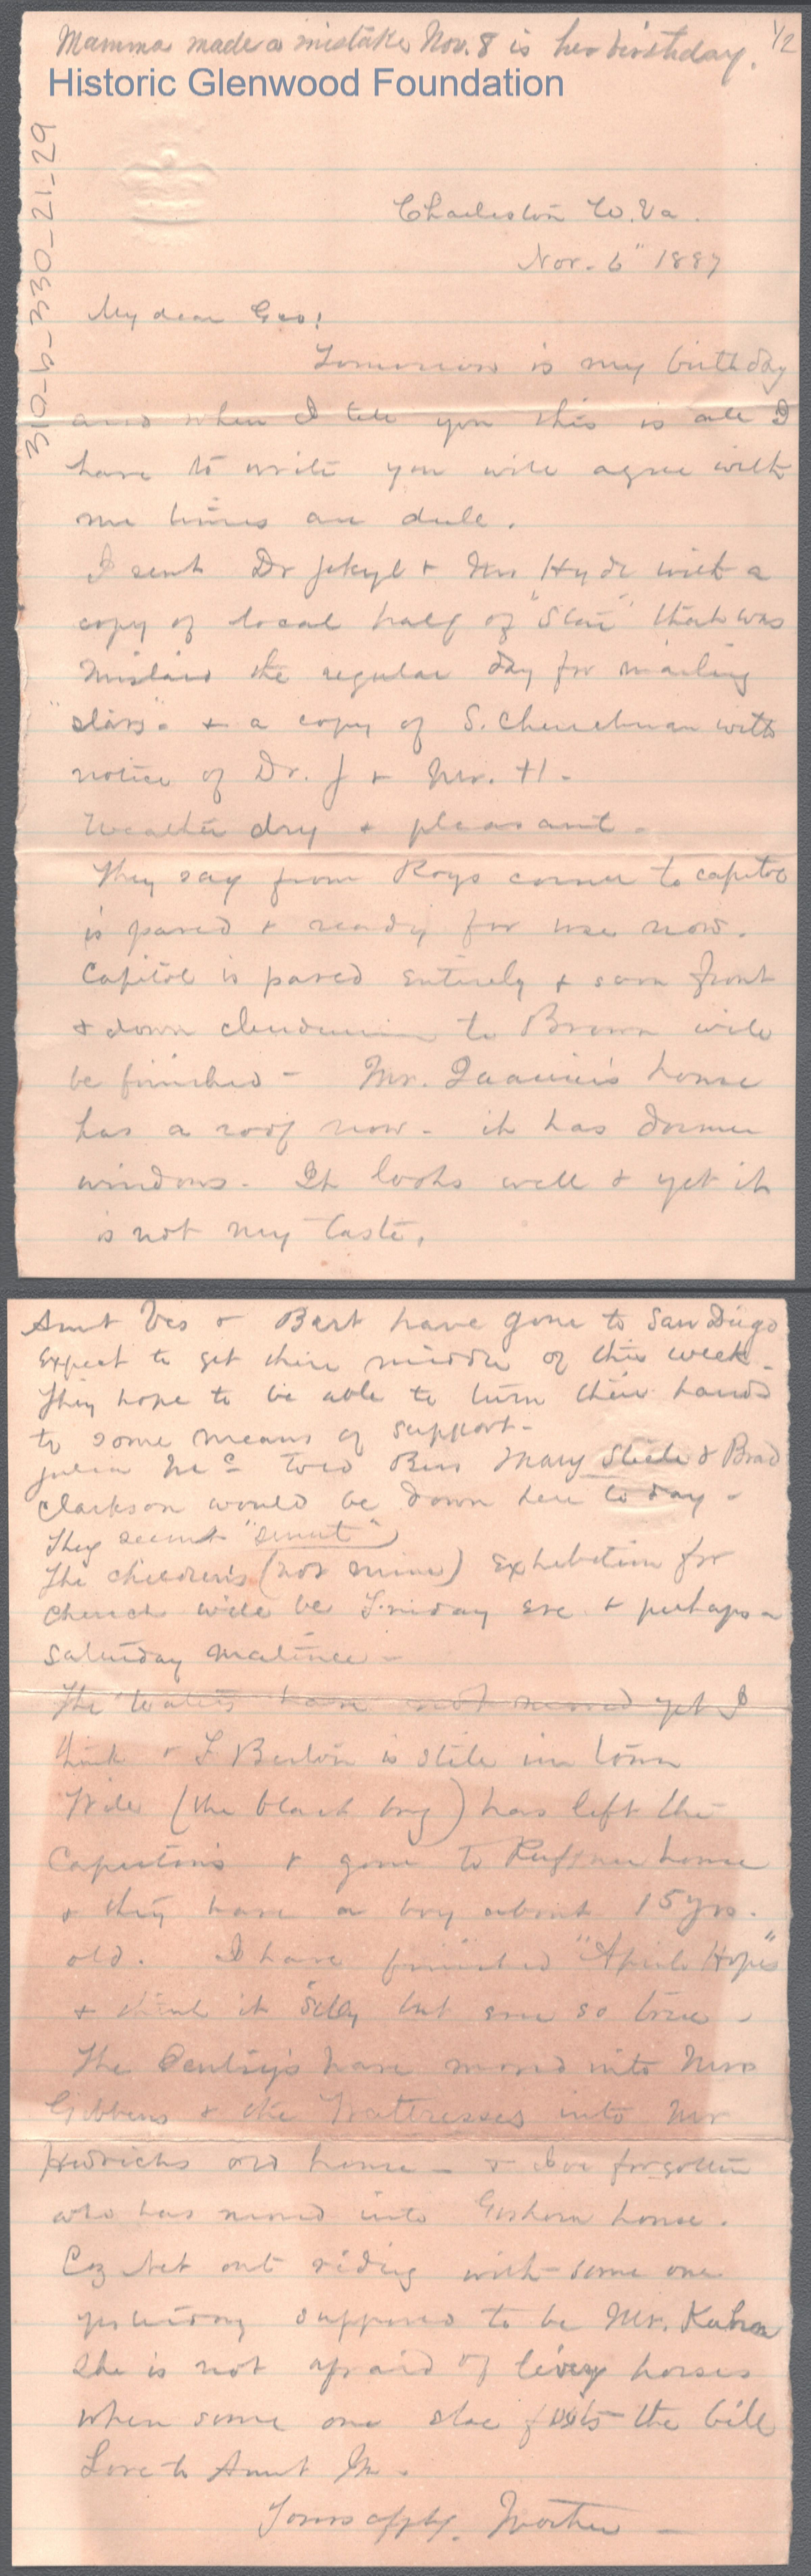 Mamma made a mistake Nov. 8 is her birthday. 1/2
Historic Glenwood Foundation
310_b_330_21_29
Charleston W. Va.
Nov. 6" 1887
My dear Geo!
Tomorrow is my birthday
and when I tell you this is all I
have to write you will agree with
me times are dull.
I sent Dr Jekyl & Mr Hyde with a
copy of local half of "Star" that was
mislaid the regular day for mailing
"stars" & a copy of S. Churchman with
notice of Dr. J & Mr. H -
Weather dry & pleasant -
They say from Roys corner to capitol
is paved & ready for use now.
Capitol is paved entirely & soon front
& down to Brown will
be finished - Mr. house
has a roof now - it has dormer
windows. It looks well & yet it
is not my taste.
Aunt Ves & Bert have gone to San Diego
Expect to get there middle of this week -
They hope to be able to turn their hands
to some means of support -
Julia Mc told Bess Mary Steele & Brad
Clarkson would be down here to day -
They seemed
The children's (not mine) Exhibition for
Church will be Friday eve & perhaps a
Saturday matinee -
The have not moved yet I
think & F Barton is still in town
(the black boy) has left the
Capertons & gone to Ruffner house
& they have a boy about 15 yrs.
old. I have finished "April Hopes"
& think it silly but some so true -
The have moved into Mrs
Gibbens & the into Mr
Hedricks old house - & I've forgotten
who has moved into Goshorn house.
Coz Net out riding with some one
yesterday supposed to be Mr. Kuhn
She is not afraid of livery horses
when some one else foots the bill
Love to Aunt M.
Yours affly. Mother -